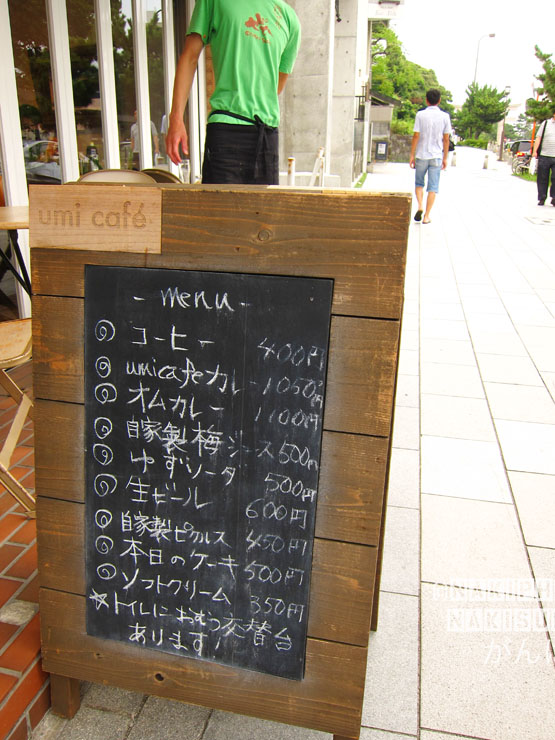 umi café
- menu -
コーヒー 400円
umicafeカレー 1050円
オムカレー 1100円
自家製梅ジュース 500円
ゆずソーダ 500円
生ビール 600円
自家製ピクルス 450円
本日のケーキ 500円
ソフトクリーム 350円
☆トイレにおむつ交替台
あります!